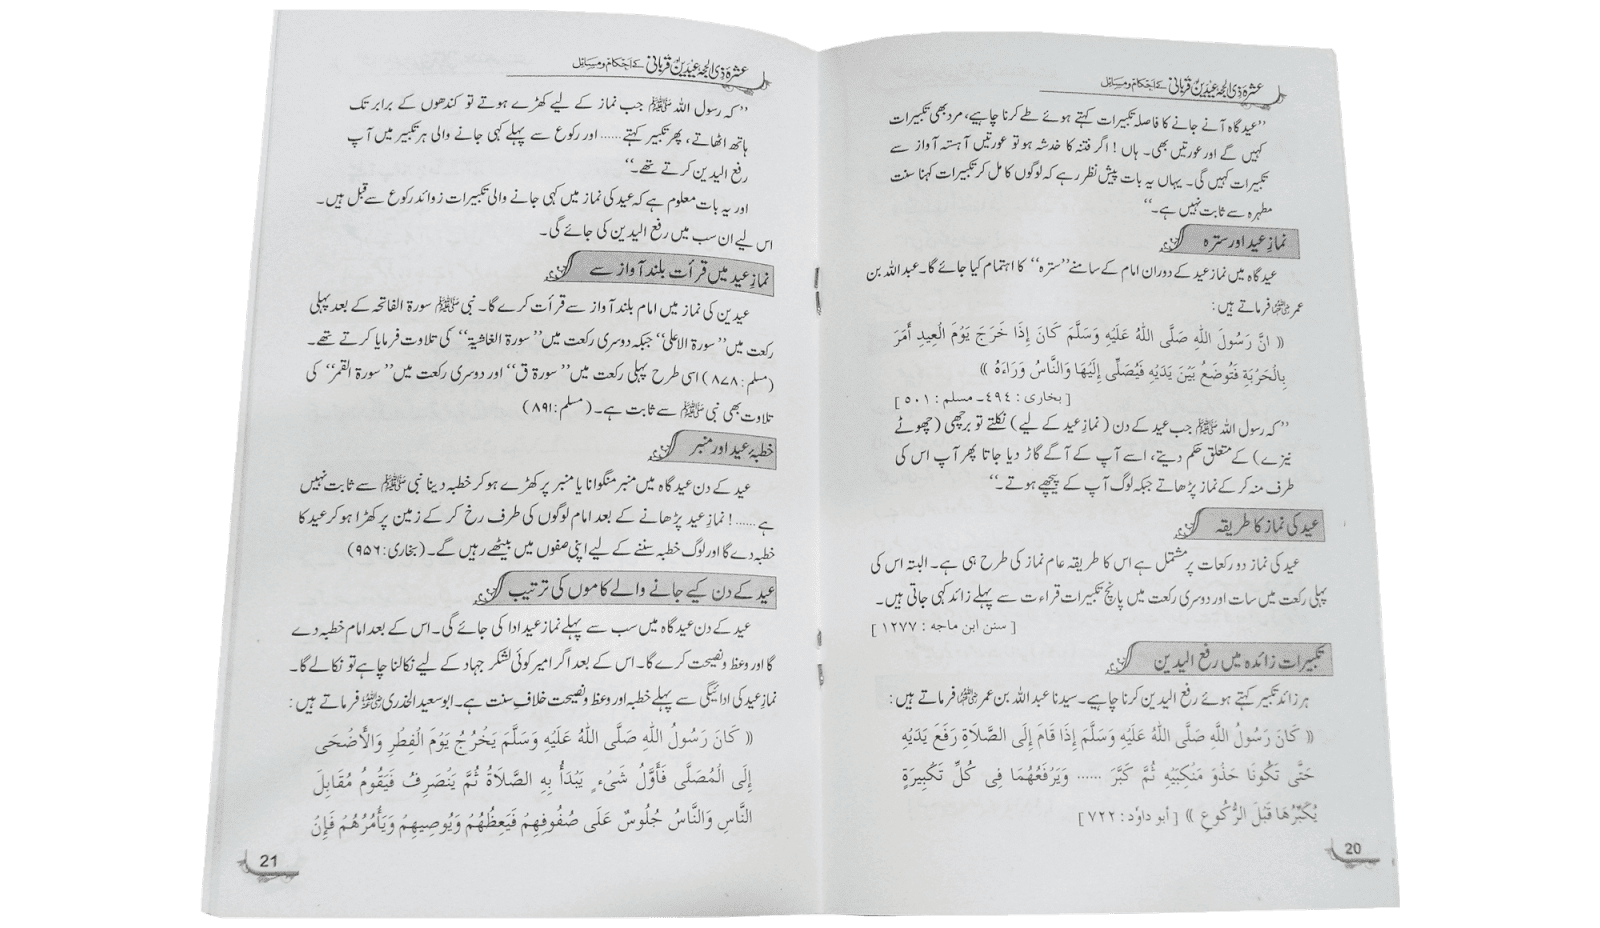 عشرہ ذی الحجہ عیدین و قربانی کے احکام و مسائل
”عیدگاہ آنے جانے کا فاصلہ تکبیرات کہتے ہوئے طے کرنا چاہیے، مرد بھی تکبیرات
کہیں گے اور عورتیں بھی۔ ہاں! اگر فتنہ کا خدشہ ہو تو عورتیں آہستہ آواز سے
تکبیرات کہیں گی۔ یہاں یہ بات پیش نظر رہے کہ لوگوں کا مل کر تکبیرات کہنا سنت
مطہرہ سے ثابت نہیں ہے۔“
نمازِ عید اور سترہ
عیدگاہ میں نماز عید کے دوران امام کے سامنے ”سترہ“ کا اہتمام کیا جائے گا۔ عبداللہ بن
عمر رضی اللہ عنہما فرماتے ہیں:
(( انَّ رَسُولَ اللهِ صَلَّى اللهُ عَلَيْهِ وَسَلَّمَ كَانَ إِذَا خَرَجَ يَوْمَ الْعِيدِ أَمَرَ
بِالْحَرْبَةِ فَتُوضَعُ بَيْنَ يَدَيْهِ فَيُصَلِّى إِلَيْهَا وَالنَّاسُ وَرَاءَهُ ))
[ بخاری : ٤٩٤۔ مسلم : ٥٠١ ]
”کہ رسول اللہ ﷺ جب عید کے دن (نمازِ عید کے لیے) نکلتے تو برچھی (چھوٹے
نیزے) کے متعلق حکم دیتے، اسے آپ کے آگے گاڑ دیا جاتا پھر آپ اس کی
طرف منہ کر کے نماز پڑھاتے جبکہ لوگ آپ کے پیچھے ہوتے۔“
عید کی نماز کا طریقہ
عید کی نماز دو رکعات پر مشتمل ہے اس کا طریقہ عام نماز کی طرح ہی ہے۔ البتہ اس کی
پہلی رکعت میں سات اور دوسری رکعت میں پانچ تکبیرات قراءت سے پہلے زائد کہی جاتی ہیں۔
[ سنن ابن ماجه : ١٢٧٧ ]
تکبیرات زائدہ میں رفع الیدین
ہر زائد تکبیر کہتے ہوئے رفع الیدین کرنا چاہیے۔ سیدنا عبداللہ بن عمر رضی اللہ عنہما فرماتے ہیں:
(( كَانَ رَسُولُ اللَّهِ صَلَّى اللهُ عَلَيْهِ وَسَلَّمَ إِذَا قَامَ إِلَى الصَّلَاةِ رَفَعَ يَدَيْهِ
حَتَّى تَكُونَا حَذْوَ مَنْكِبَيْهِ ثُمَّ كَبَّرَ ...... وَيَرْفَعُهُمَا فِى كُلِّ تَكْبِيرَةٍ
يُكَبِّرُهَا قَبْلَ الرُّكُوعِ )) [ أبو داؤد : ٧٢٢ ]
20
عشرہ ذی الحجہ عیدین و قربانی کے احکام و مسائل
”کہ رسول اللہ ﷺ جب نماز کے لیے کھڑے ہوتے تو کندھوں کے برابر تک
ہاتھ اٹھاتے، پھر تکبیر کہتے...... اور رکوع سے پہلے کہی جانے والی ہر تکبیر میں آپ
رفع الیدین کرتے تھے۔“
اور یہ بات معلوم ہے کہ عید کی نماز میں کہی جانے والی تکبیرات زوائد رکوع سے قبل ہیں۔
اس لیے ان سب میں رفع الیدین کی جائے گی۔
نمازِ عید میں قرأت بلند آواز سے
عیدین کی نماز میں امام بلند آواز سے قرأت کرے گا۔ نبی ﷺ سورۃ الفاتحہ کے بعد پہلی
رکعت میں ”سورۃ الاعلیٰ“ جبکہ دوسری رکعت میں ”سورۃ الغاشیۃ“ کی تلاوت فرمایا کرتے تھے۔
(مسلم: ۸۷۸) اسی طرح پہلی رکعت میں ”سورۃ ق“ اور دوسری رکعت میں ”سورۃ القمر“ کی
تلاوت بھی نبی ﷺ سے ثابت ہے۔ (مسلم: ۸۹۱)
خطبۂ عید اور منبر
عید کے دن عیدگاہ میں منبر منگوانا یا منبر پر کھڑے ہو کر خطبہ دینا نبی ﷺ سے ثابت نہیں
ہے......! نمازِ عید پڑھانے کے بعد امام لوگوں کی طرف رخ کر کے زمین پر کھڑا ہو کر عید کا
خطبہ دے گا اور لوگ خطبہ سننے کے لیے اپنی صفوں میں بیٹھے رہیں گے۔ (بخاری: ۹۵۶)
عید کے دن کیے جانے والے کاموں کی ترتیب
عید کے دن عیدگاہ میں سب سے پہلے نماز عید ادا کی جائے گی۔ اس کے بعد امام خطبہ دے
گا اور وعظ و نصیحت کرے گا۔ اس کے بعد اگر امیر کوئی لشکر جہاد کے لیے نکالنا چاہے تو نکالے گا۔
نمازِ عید کی ادائیگی سے پہلے خطبہ اور وعظ و نصیحت خلافِ سنت ہے۔ ابوسعید الخدری رضی اللہ عنہ فرماتے ہیں:
(( كَانَ رَسُولُ اللهِ صَلَّى اللهُ عَلَيْهِ وَسَلَّمَ يَخْرُجُ يَوْمَ الْفِطْرِ وَالْأَضْحَى
إِلَى الْمُصَلَّى فَأَوَّلُ شَىْءٍ يَبْدَأُ بِهِ الصَّلَاةُ ثُمَّ يَنْصَرِفُ فَيَقُومُ مُقَابِلَ
النَّاسِ وَالنَّاسُ جُلُوسٌ عَلَى صُفُوفِهِمْ فَيَعِظُهُمْ وَيُوصِيهِمْ وَيَأْمُرُهُمْ فَإِنْ
21